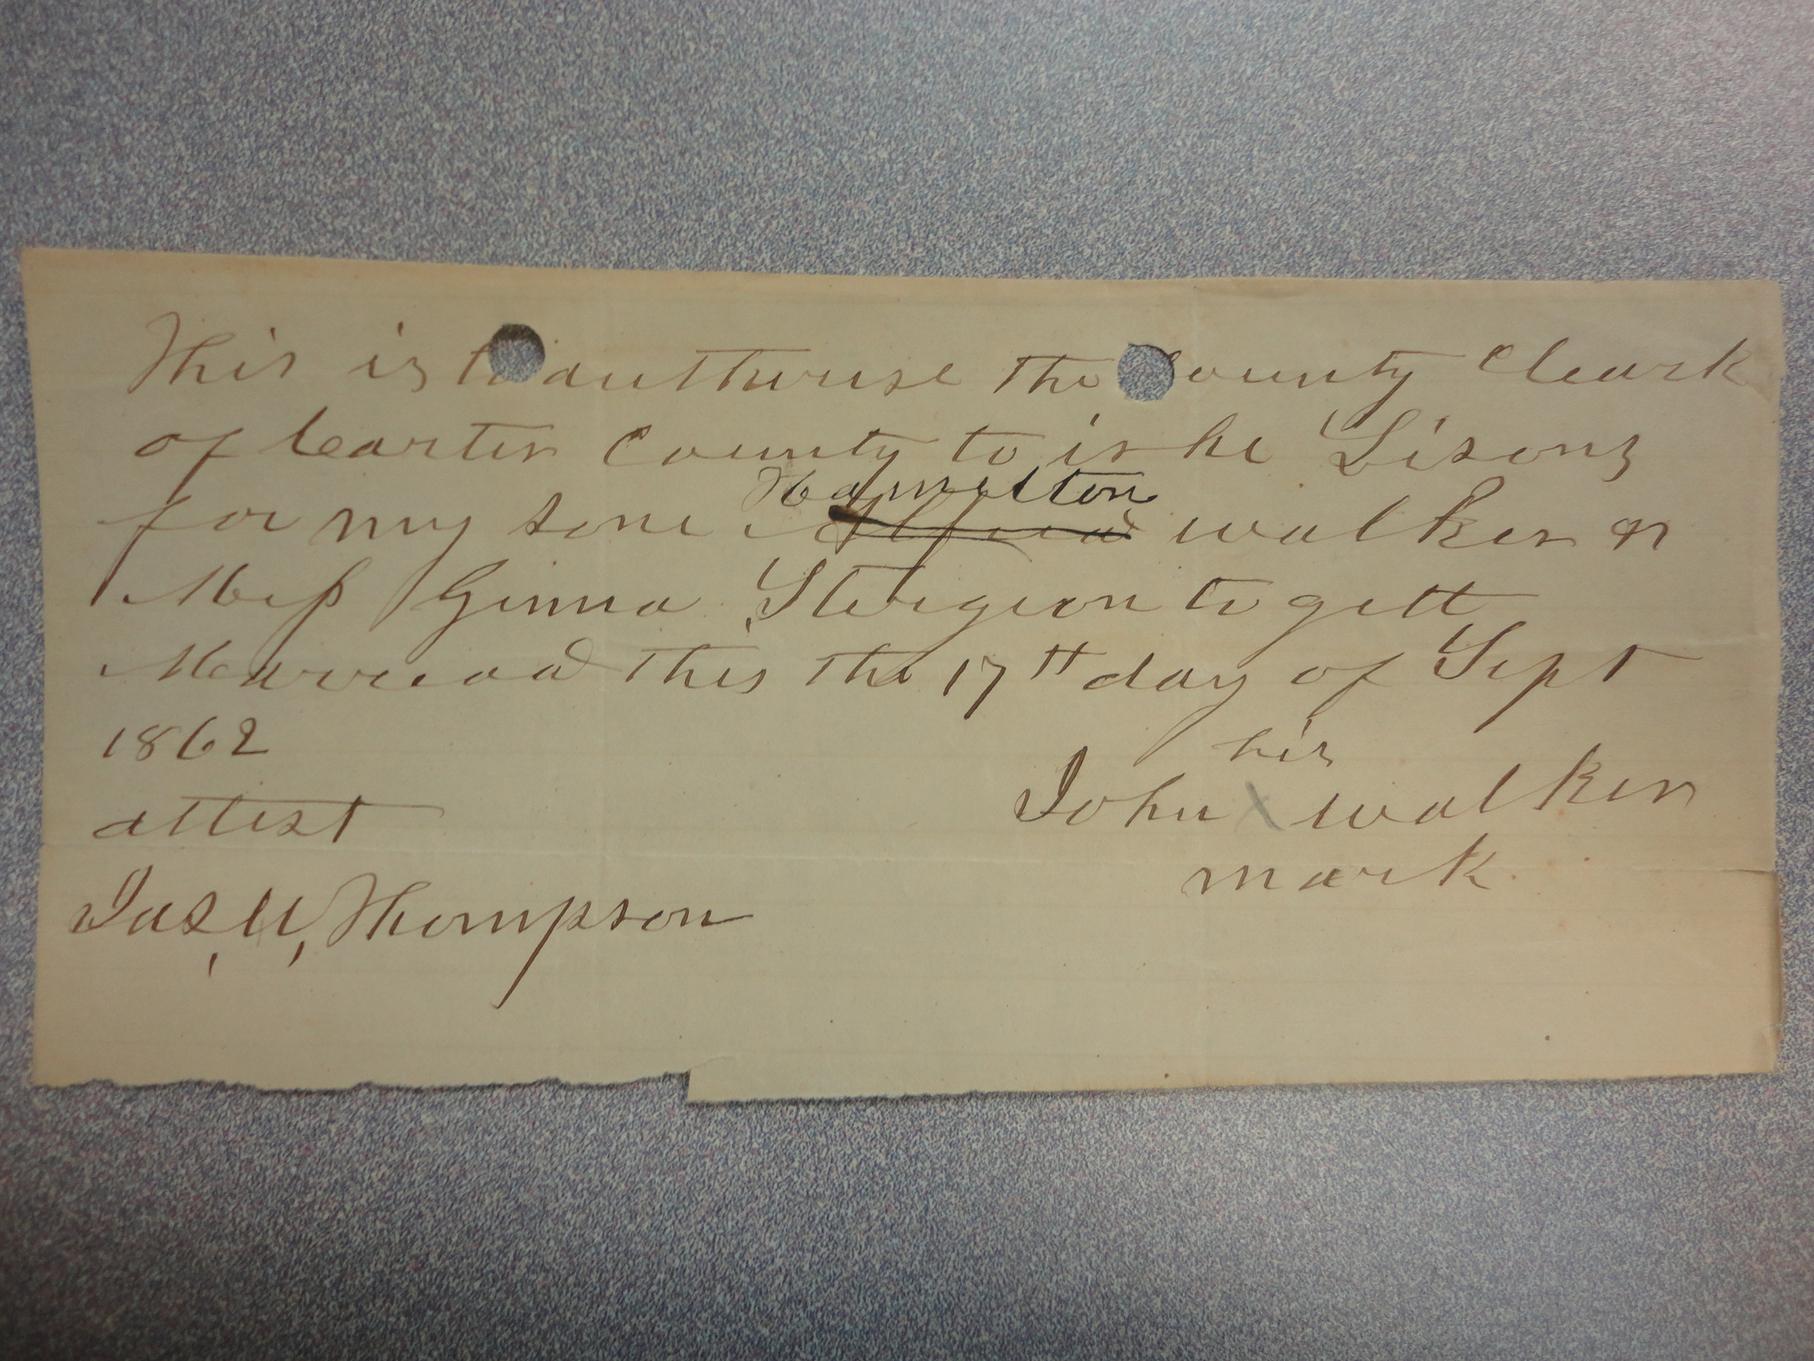 This is to authurise the County Cleark
of Carter County to ishe Lisons
Hamelton
for my sone Alfred walker &
Miss Ginna Sturgeon to gett
Marreead this the 17th day of Sept
1862
his
John X walker
mark
attest
Jas, U, Thompson